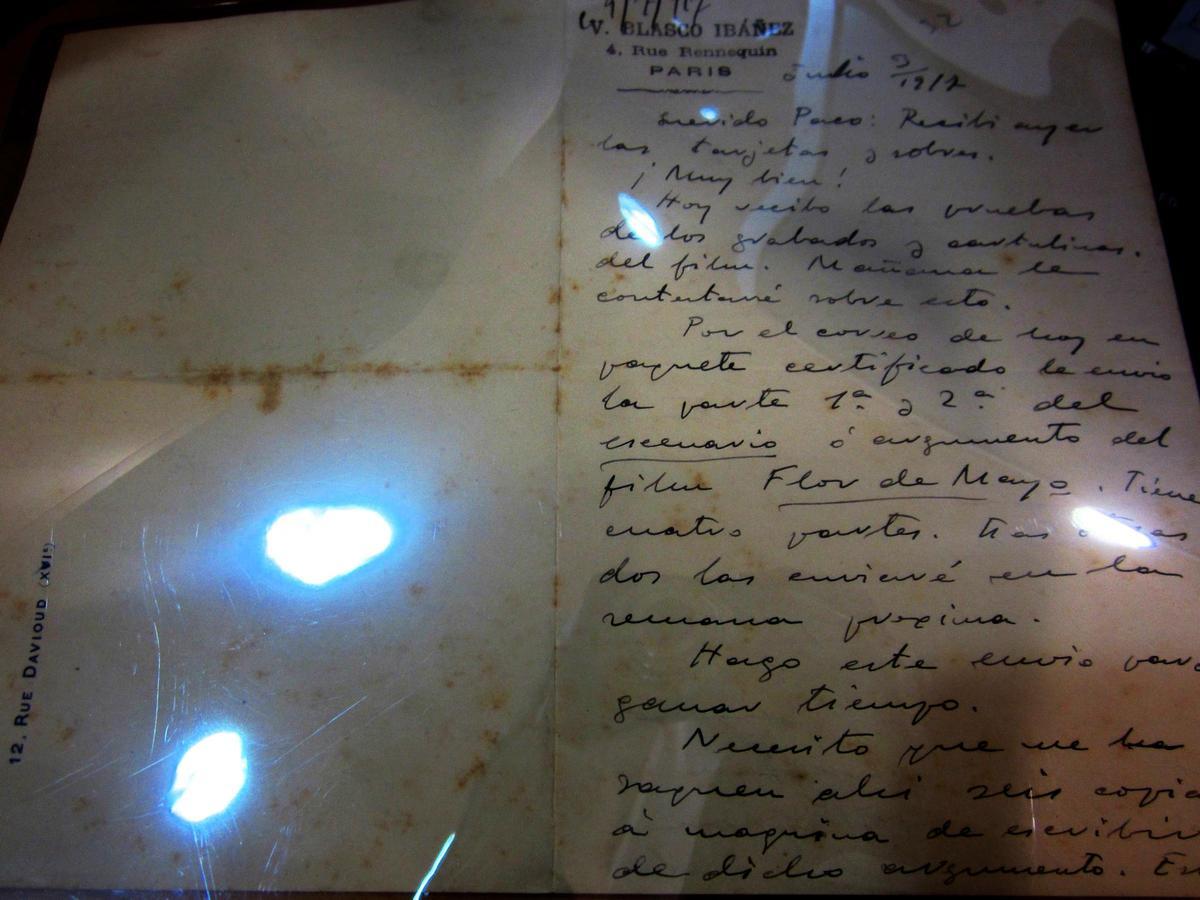 9/7/17
V. BLASCO IBÁÑEZ
4, Rue Rennequin
PARIS
Julio 9/1917
Querido Paco: Recibi ayer
las tarjetas y sobres.
¡Muy bien!
Hoy recibo las pruebas
de los grabados y cartulinas.
del film. Mañana le
contestaré sobre esto.
Por el correo de hoy en
paquete certificado le envio
la parte 1ª y 2ª del
escenario ó argumento del
film Flor de Mayo. Tiene
cuatro partes. Las otras
dos las enviaré en la
semana proxima.
Hago este envio para
ganar tiempo.
Necesito que me la
saquen ahi seis copia
á maquina de escribir
de dicho argumento. Es
12, RUE DAVIOUD (XVIe)